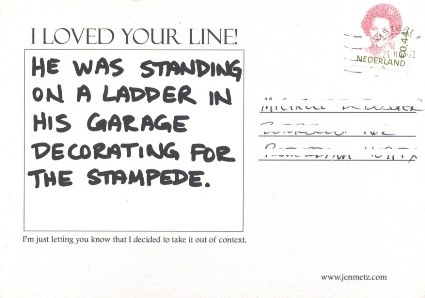 I LOVED YOUR LINE!
HE WAS STANDING
ON A LADDER IN
HIS GARAGE
DECORATING FOR
THE STAMPEDE.
I'm just letting you know that I decided to take it out of context.
NEDERLAND
€0,44
www.jenmetz.com